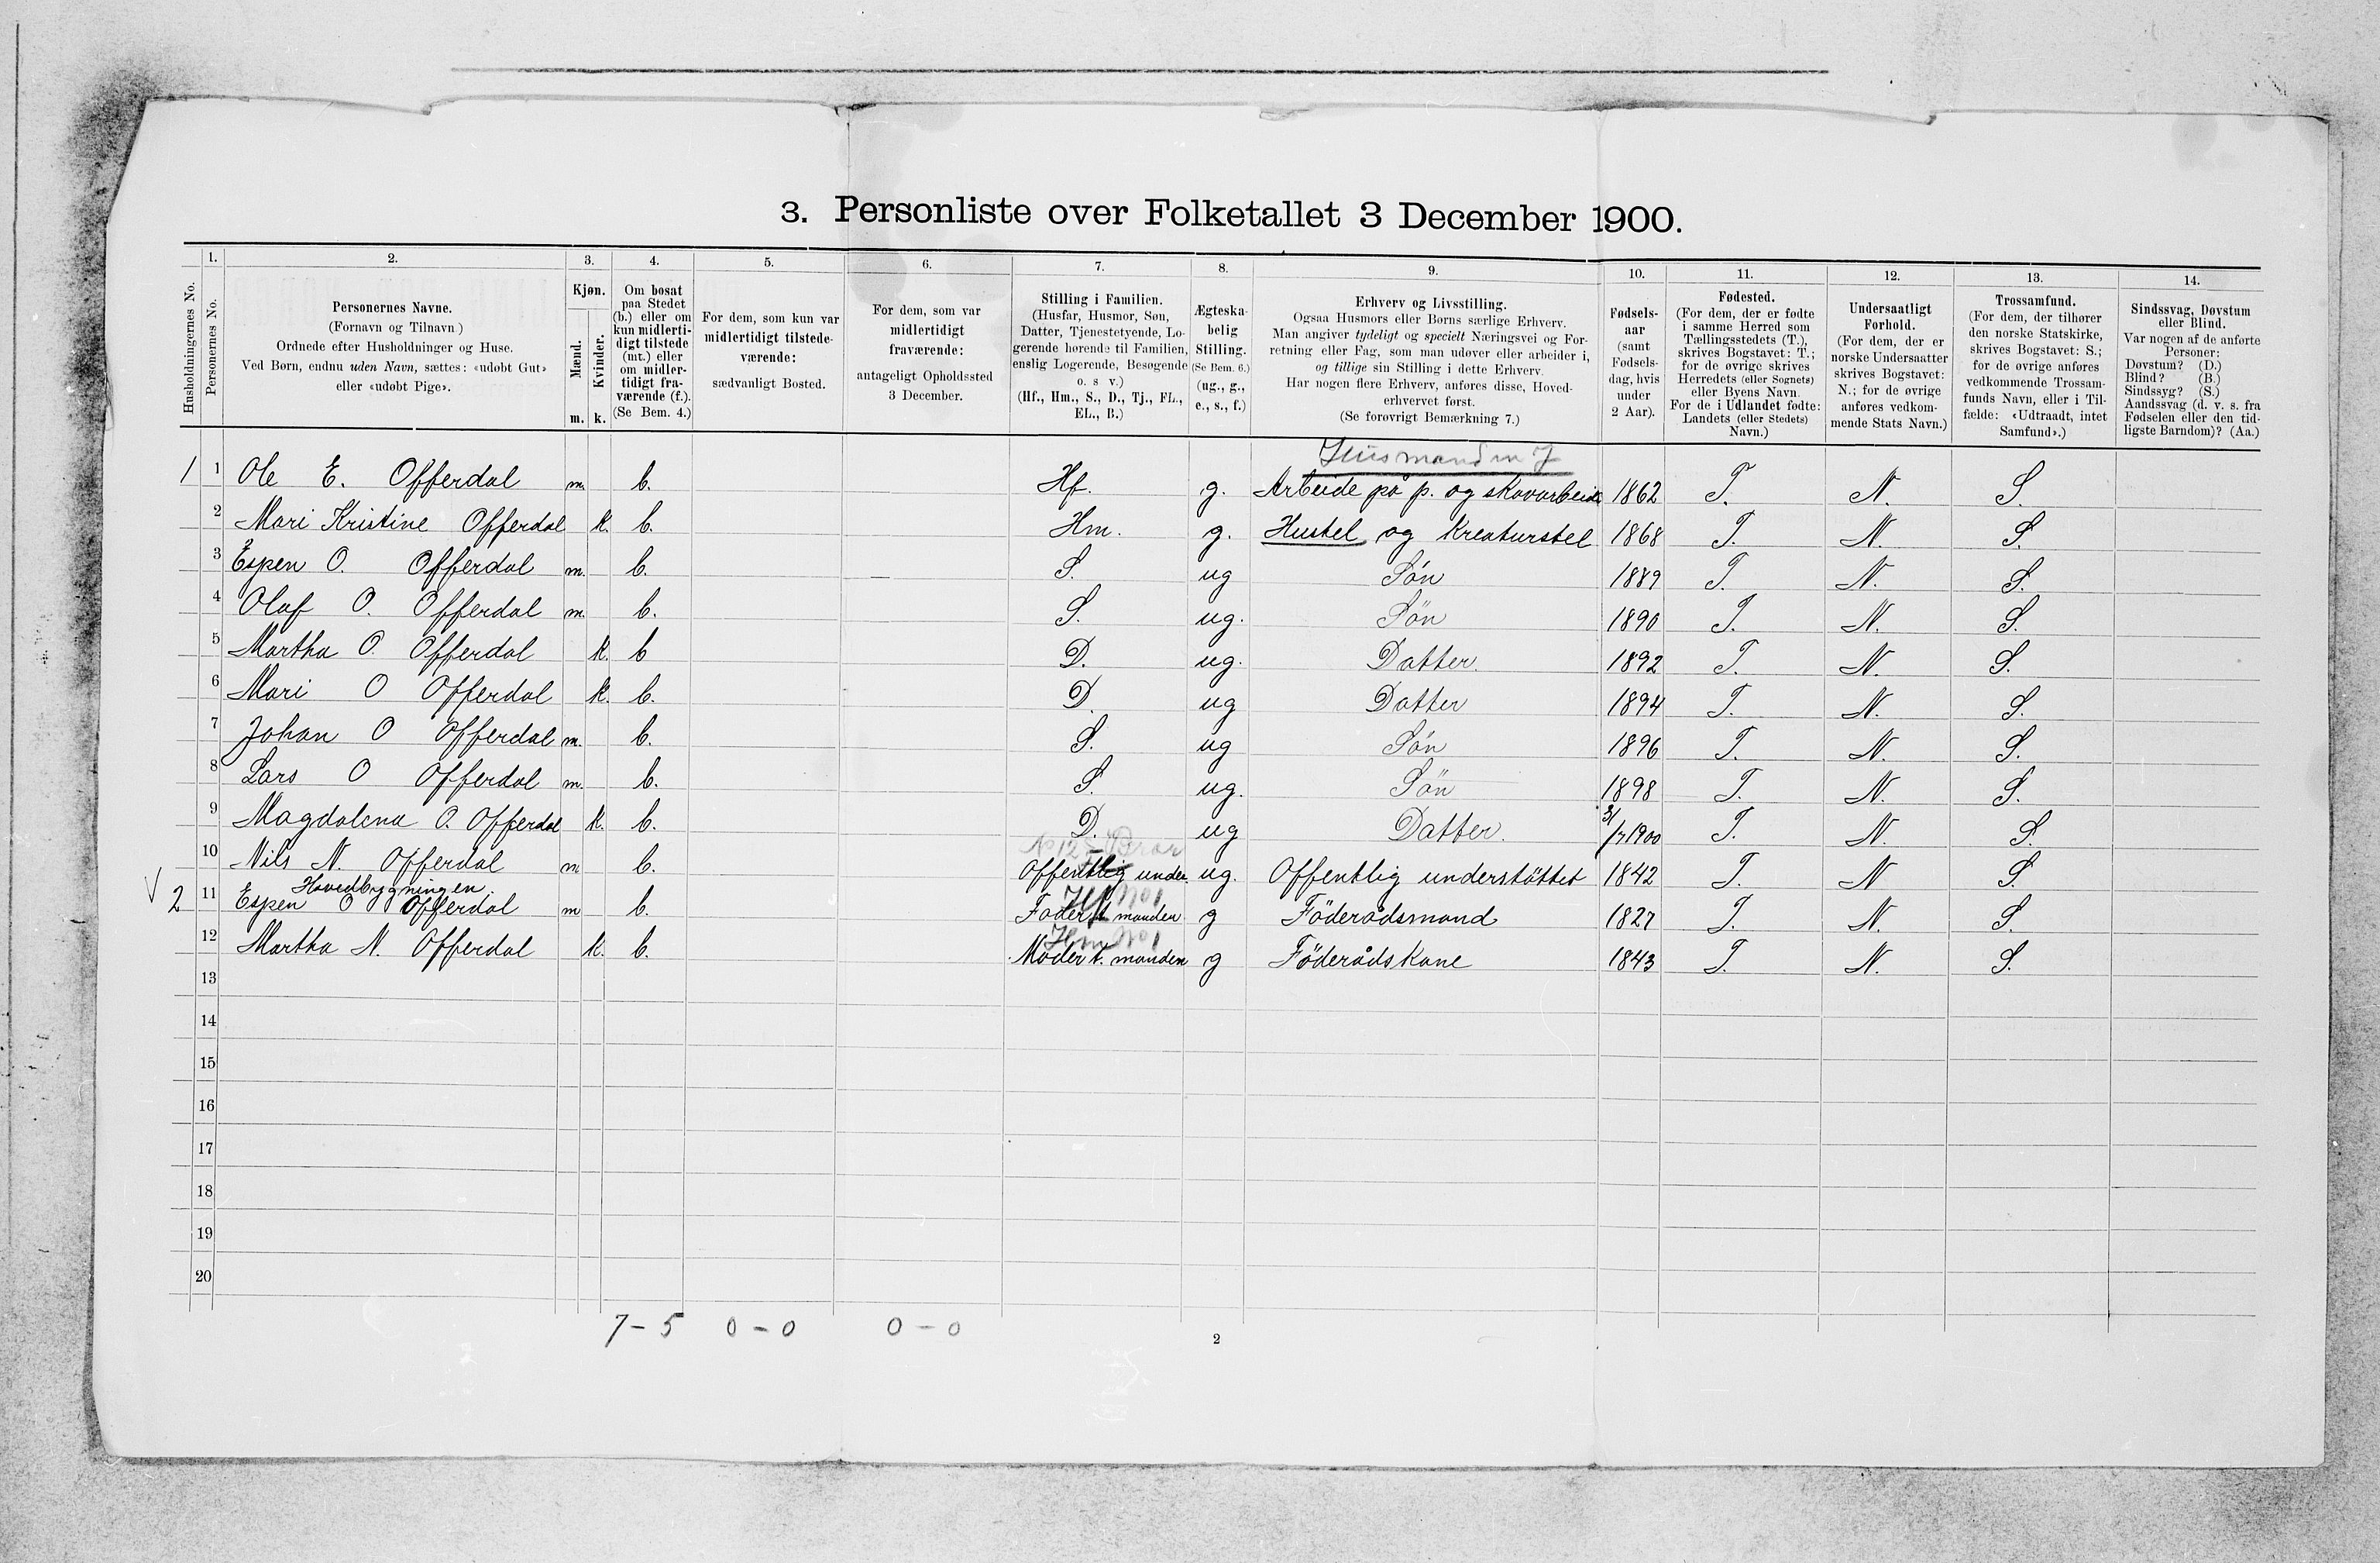 3. Personliste over Folketallet 3 December 1900.
Husholdningernes No.
1.
Personernes No.
2.
Personernes Navne.
(Fornavn og Tilnavn)
Ordnede efter Husholdninger og Huse.
Ved Børn, endnu uden Navn, sættes: «udøbt Gut»
eller «udøbt Pige».
3.
Kjøn.
Mænd.
Kvinder.
m. k.
4.
Om bosat
paa Stedet
(b.) eller om
kun midlerti-
digt tilstede
(mt.) eller
om midler-
tidigt fra-
værende (f.).
(Se Bem. 4.)
5.
For dem, som kun var
midlertidigt tilstede-
værende:
sædvanligt Bosted.
6.
For dem, som var
midlertidigt
fraværende:
antageligt Opholdssted
3 December.
7.
Stilling i Familien.
(Husfar, Husmor, Søn,
Datter, Tjenestetyende, Lo-
gerende hørende til Familien,
enslig Logerende, Besøgende
o. s v.)
(Hf., Hm., S., D., Tj., FL.,
EL., B.)
8.
Ægteska-
belig
Stilling.
(Se Bem. 6.)
(ug., g.,
e., s., f.)
9.
Erhverv og Livsstilling.
Ogsaa Husmors eller Børns særlige Erhverv.
Man angiver tydeligt og specielt Næringsvei og For-
retning eller Fag, som man udøver eller arbeider i,
og tillige sin Stilling i dette Erhverv.
Har nogen flere Erhverv, anføres disse, Hoved-
erhvervet først.
(Se forøvrigt Bemærkning 7.)
10.
Fødsels-
aar
(samt
Fødsels-
dag, hvis
under
2 Aar).
11.
Fødested.
(For dem, der er fødte
i samme Herred som
Tællingsstedets (T.),
skrives Bogstavet: T.;
for de øvrige skrives
Herredets (eller Sognets)
eller Byens Navn.
For de i Udlandet fødte:
Landets (eller Stedets)
Navn.)
12.
Undersaatligt
Forhold.
(For dem, der er
norske Undersaatter
skrives Bogstavet:
N.; for de øvrige
anføres vedkom-
mende Stats Navn.)
13.
Trossamfund.
(For dem, der tilhører
den norske Statskirke,
skrives Bogstavet: S.;
for de øvrige anføres
vedkommende Trossam-
funds Navn, eller i Til-
fælde: «Udtraadt, intet
Samfund».)
14.
Sindssvag, Døvstum
eller Blind.
Var nogen af de anførte
Personer:
Døvstum? (D.)
Blind? (B.)
Sindssyg? (S.)
Aandssvag (d. v. s. fra
Fødselen eller den tid-
ligste Barndom)? (Aa.)
Husmand m J
1 1 Ole E. Offerdal m. b. Hf. g. Arbeide på p. og skovarbeide 1862 T. N. S.
2 Mari Kristine Offerdal k. b. Hm. g. Hustel og Kreaturstel 1868 T. N. S.
3 Espen O. Offerdal m. b. S. ug Sön 1889 T. N. S.
4 Olaf O. Offerdal m. b. S. ug. Sön 1890 T. N. S.
5 Martha O. Offerdal k. b D. ug. Datter. 1892 T. N. S.
6 Mari O Offerdal k. b. D. ug Datter 1894 T. N. S.
7 Johan O Offerdal m. b. S. ug Sön 1896 T. N. S.
8 Lars O Offerdal m. b. S. ug. Sön 1898 T. N. S.
9 Magdalena O. Offerdal k. b. D. ug Datter. 31/7 1900 T. N. S.
No 12s Bror
10 Nils N. Offerdal m b. Offentlig under. ug. Offentlig understöttet 1842 T. N S.
Hovedbygningen.
Hf No 1
2 11 Espen O Offerdal m b. Fader t. manden g Föderådsmand 1827 T. N. S.
Hm No 1
12 Martha N. Offerdal k. b. Moder t. manden g Föderådskone 1843 T. N. S.
13
14
15
16
17
18
19
20
7 - 5 0 - 0 0 - 0
2